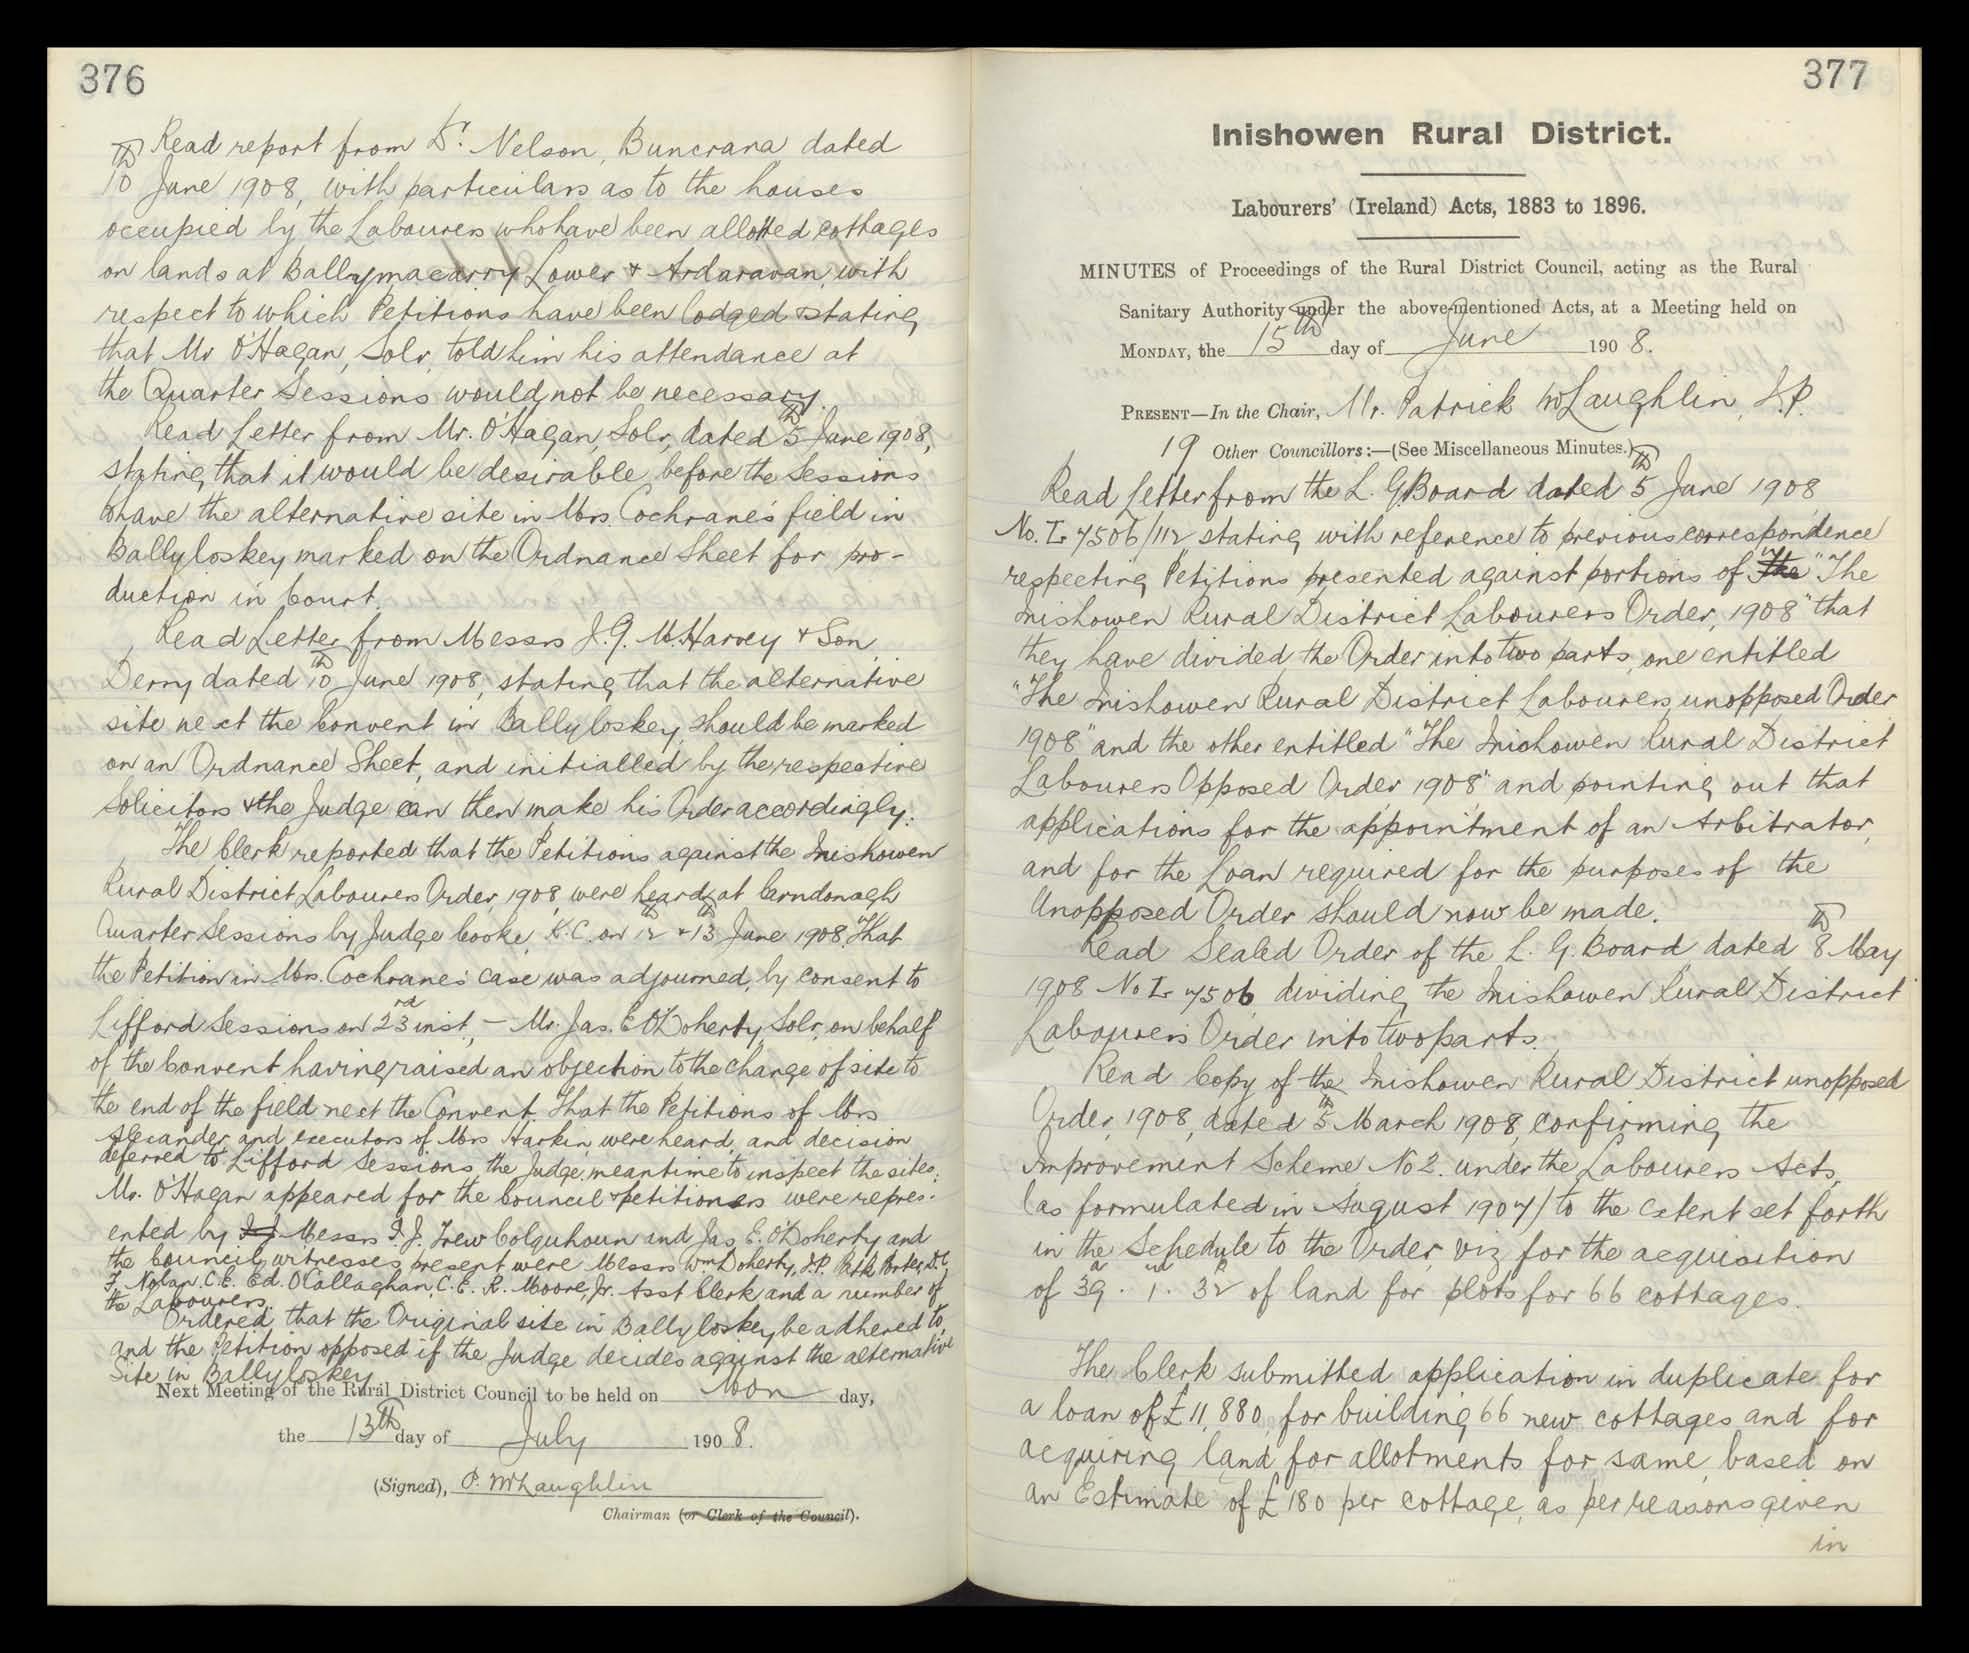 376
Read report from Dr. Nelson, Buncrana dated
10th June 1908, with particulars as to the houses
occupied by the Labourers who have been allotted cottages
on lands at Ballymacarry Lower & Ardaravan, with
respect to which Petitions have been lodged & stating
that Mr O'Hagan, Solr, told him his attendance at
the Quarter Sessions would not be necessary.
Read Letter from Mr. O'Hagan, Solr, dated 5th June 1908,
stating that it would be desirable, before the Sessions
to have the alternative site in Mrs. Cochrane's field in
Ballyloskey marked on the Ordnance Sheet for pro-
duction in Court.
Read Letter from Messrs J. G. McHarvey & Son,
Derry dated 10th June 1908, stating that the alternative
site next the Convent in Ballyloskey should be marked
on an Ordnance Sheet, and initialled by the respective
Solicitors & the Judge can then make his Order accordingly.
The Clerk reported that the Petitions against the Inishowen
Rural District Labourers Order, 1908, were heard, at Carndonagh
Quarter Sessions by Judge Cooke, K.C. on 12th & 13th June 1908, That
the Petition in Mrs. Cochrane's case was adjourned, by consent to
Lifford Sessions on 23rd inst, – Mr. Jas. E. O'Doherty, Solr, on behalf
of the Convent having raised an objection to the change of site to
the end of the field next the Convent. That the Petitions of Mrs
Alexander, and executors of Mrs Harkin, were heard, and decision
deferred to Lifford Sessions, the Judge, meantime to inspect the sites.
Mr. O'Hagan appeared for the Council & petitioners were repres-
ented by Messrs I. J. Trew Colquhoun and Jas. E. O'Doherty and
the Council witnesses present were Messrs Wm Doherty, J.P. Patk Porter, D.C,
F. Nolan, C.E. Ed. O'Callaghan, C.E. R. Moore, Jr. Asst Clerk and a number of
the Labourers.
Ordered, that the Original site in Ballyloskey be adhered to,
and the Petition opposed if the Judge decides against the alternative
Site in Ballyloskey
Next Meeting of the Rural District Council to be held on Mon day,
the 13th day of July 1908.
(Signed), P. McLaughlin
Chairman (or Clerk of the Council).
377
Inishowen Rural District.
Labourers' (Ireland) Acts, 1883 to 1896.
MINUTES of Proceedings of the Rural District Council, acting as the Rural
Sanitary Authority under the above-mentioned Acts, at a Meeting held on
MONDAY, the 15th day of June 1908.
PRESENT—In the Chair, Mr. Patrick McLaughlin, J.P.
19 Other Councillors:—(See Miscellaneous Minutes.)
Read Letter from the L. G. Board dated 5th June 1908
No. L 7506/112 stating with reference to previous correspondence
respecting Petitions presented against portions of the "The
Inishowen Rural District Labourers Order, 1908" that
they have divided the Order into two parts, one entitled
"The Inishowen Rural District Labourers unopposed Order
1908" and the other entitled "The Inishowen Rural District
Labourers Opposed Order 1908" and pointing out that
applications for the appointment of an Arbitrator,
and for the Loan required for the purposes of the
Unopposed Order should now be made.
Read Sealed Order of the L. G. Board dated 8th May
1908 No L 7506 dividing the Inishowen Rural District
Labourers Order into two parts.
Read Copy of the Inishowen Rural District unopposed
Order, 1908, dated 5th March 1908, confirming the
Improvement Scheme No 2. under the Labourers Acts,
(as formulated in August 1907) to the extent set forth
in the Schedule to the Order, viz for the acquisition
of 39a. 1r. 32p of land for plots for 66 cottages.
The Clerk submitted application in duplicate for
a loan of £11,880, for building 66 new cottages and for
acquiring land for allotments for same, based on
an Estimate of £180 per cottage, as per reasons given
in